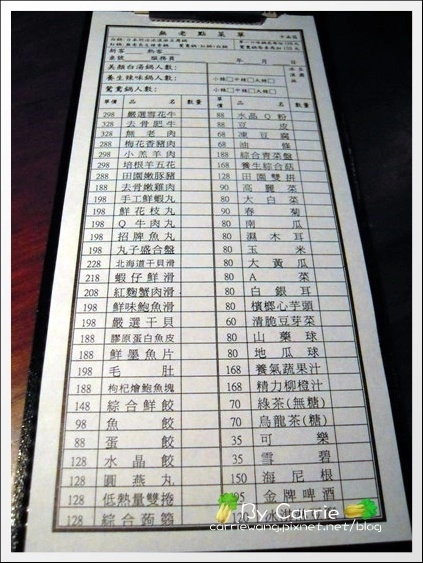 無老點菜單
美顏白湯鍋人數:
養生辣味鍋人數: 小辣□中辣□大辣□
鴛鴦鍋人數: 小辣□中辣□大辣□
單價 品名 數量 單價 品名 數量
298 嚴選雪花牛 88 水晶Q粉
328 去骨肥牛 88 豆皮
328 無老肉 68 凍豆腐
288 梅花香豬肉 68 油條
298 小羔羊肉 188 綜合青菜盤
298 培根羊五花 168 養生綜合菇
288 田園嫩豚豬 128 田園雙拼
188 去骨嫩雞肉 90 高麗菜
198 手工鮮蝦丸 80 大白菜
198 鮮花枝丸 90 春菊
198 Q牛肉丸 80 南瓜
198 招牌魚丸 80 濕木耳
198 丸子盛合盤 80 玉米
228 北海道干貝滑 80 大黃瓜
218 蝦仔鮮滑 80 A菜
208 紅麴蟹肉滑 80 白銀耳
198 鮮味鮑魚滑 80 檳榔心芋頭
198 嚴選干貝 60 清脆豆芽菜
188 膠原蛋白魚皮 80 山藥球
188 鮮墨魚片 80 地瓜球
198 毛肚 168 養氣蔬果汁
188 枸杞燴鮑魚塊 168 精力柳橙汁
148 綜合鮮餃 70 綠茶(無糖)
98 魚餃 70 烏龍茶(糖)
88 蛋餃 35 可樂
128 水晶餃 35 雪碧
128 圓燕丸 150 海尼根
128 低熱量雙捲 95 金牌啤酒
128 綜合蒟蒻 120
By Carrie
carriewang.pixnet.net/blog